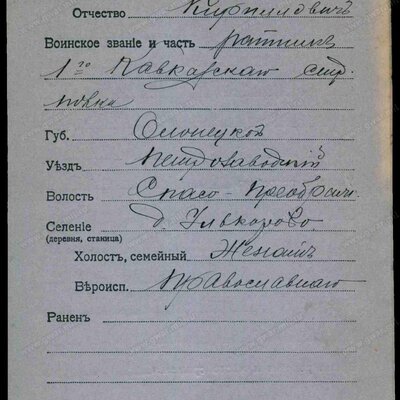 Отчество Кирилловичъ
Воинское званіе и часть ратникъ
1го Кавказскаго стр.
полка
Губ. Олонецкой
Уѣздъ Петрозаводскій
Волость Спасо-Преображ.
Селеніе д.
(деревня, станица)
Холостъ, семейный Женатъ
Вѣроисп. Православнаго
Раненъ